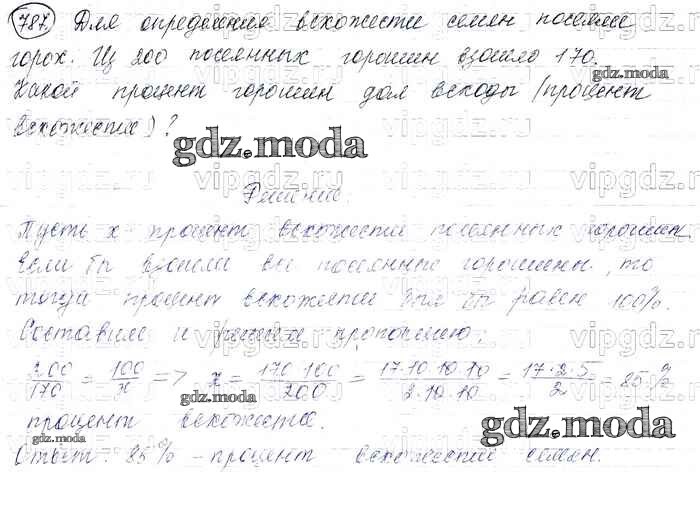 787. Для определения всхожести семян посеяли
горох. Из 200 посеянных горошин взошло 170.
Какой процент горошин дал всходы (процент
всхожести)?
Решение.
Пусть x процент всхожести посеянных горошин.
Если бы взошли все посеянные горошины, то
тогда процент всхожести был бы равен 100%.
Составим и решим пропорцию:
200/170 = 100/x => x = 170·100/200 = 17·10·10·10/2·10·10 = 17·2·5/2 = 85%
процент всхожести.
Ответ: 85% - процент всхожести семян.
gdz.moda
gdz.moda
gdz.moda
gdz.moda
gdz.moda
gdz.moda
vipgdz.ru